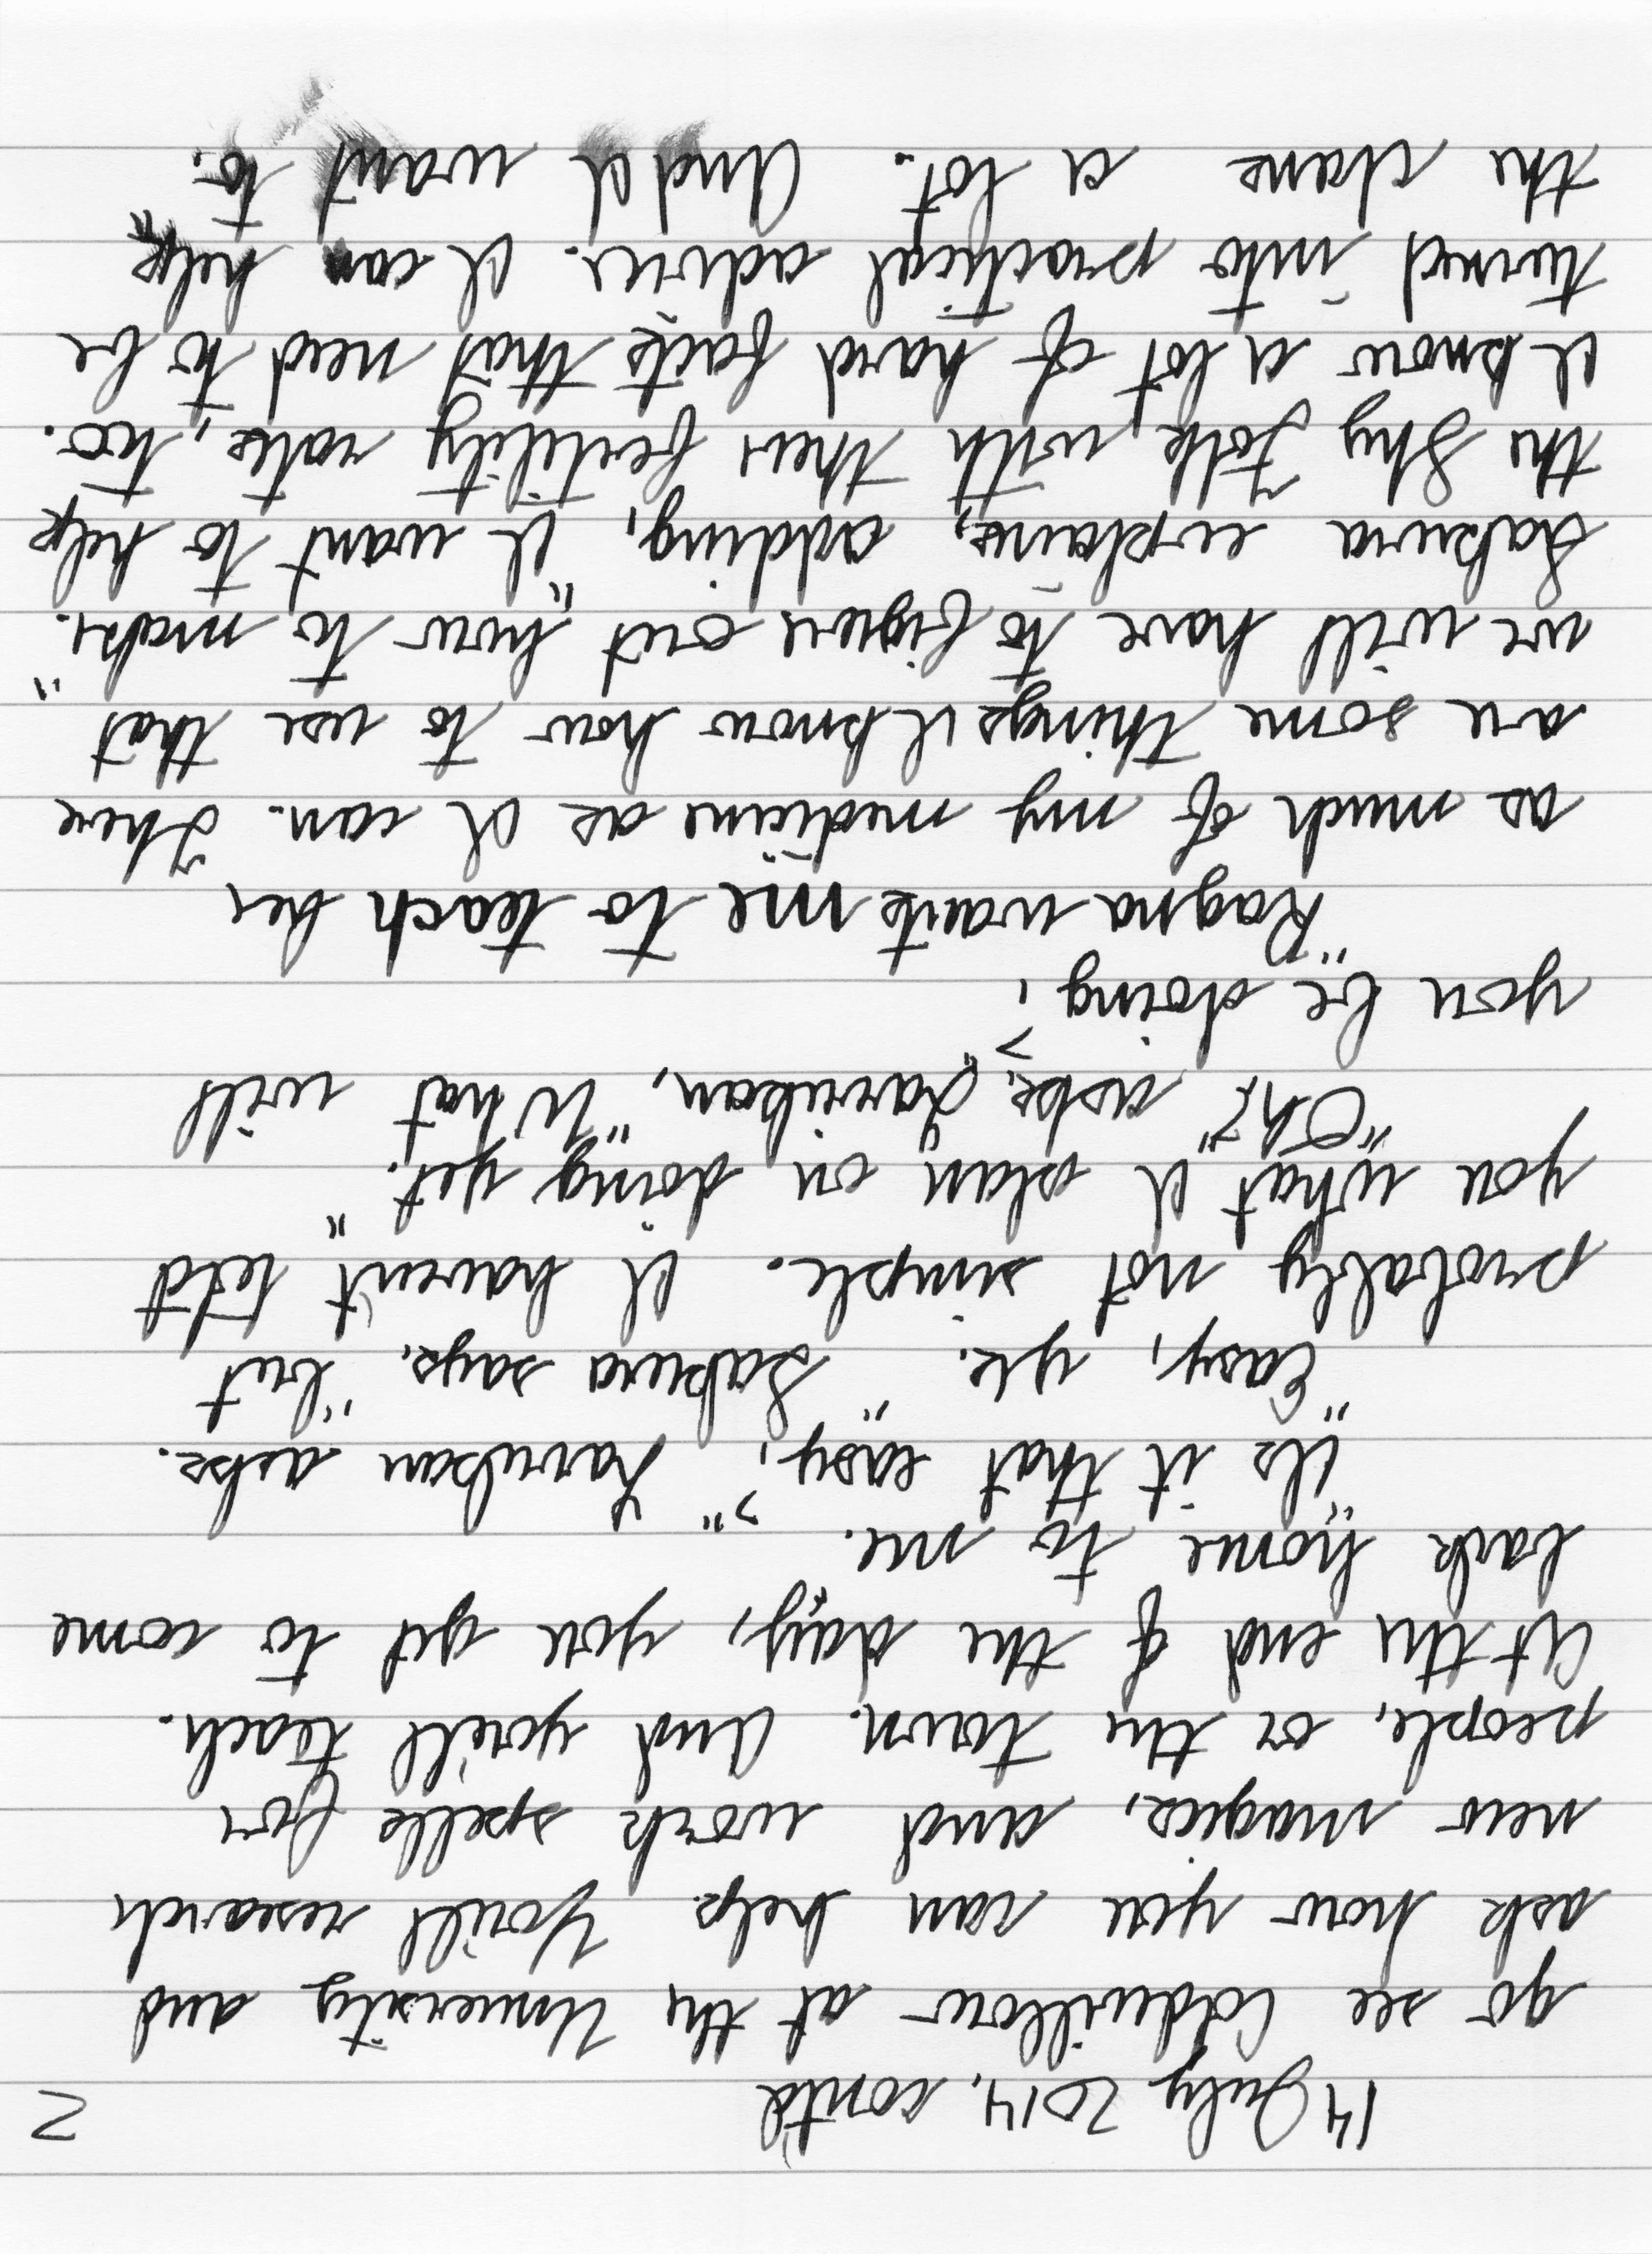 14 July 2014, cont'd
2
go see Coldwillow at the University and
ask how you can help. You'll research
new magics, and work spells for
people, or the town. And you'll teach.
At the end of the day, you get to come
back home to me."
"Is it that easy?" Larriban asks.
"Easy, yes." Sakura says, "but
probably not simple. I haven't told
you what I plan on doing yet."
"Oh?" asks Larriban, "What will
you be doing?
"Ragna wants me to teach her
as much of my medicine as I can. There
are some things I know how to use that
we will have to figure out how to make."
Sakura explains, adding, "I want to help
the Shy Folk with their fertility rates, too.
I know a lot of hard facts that need to be
turned into practical advice. I can help
the clans a lot. And I want to."